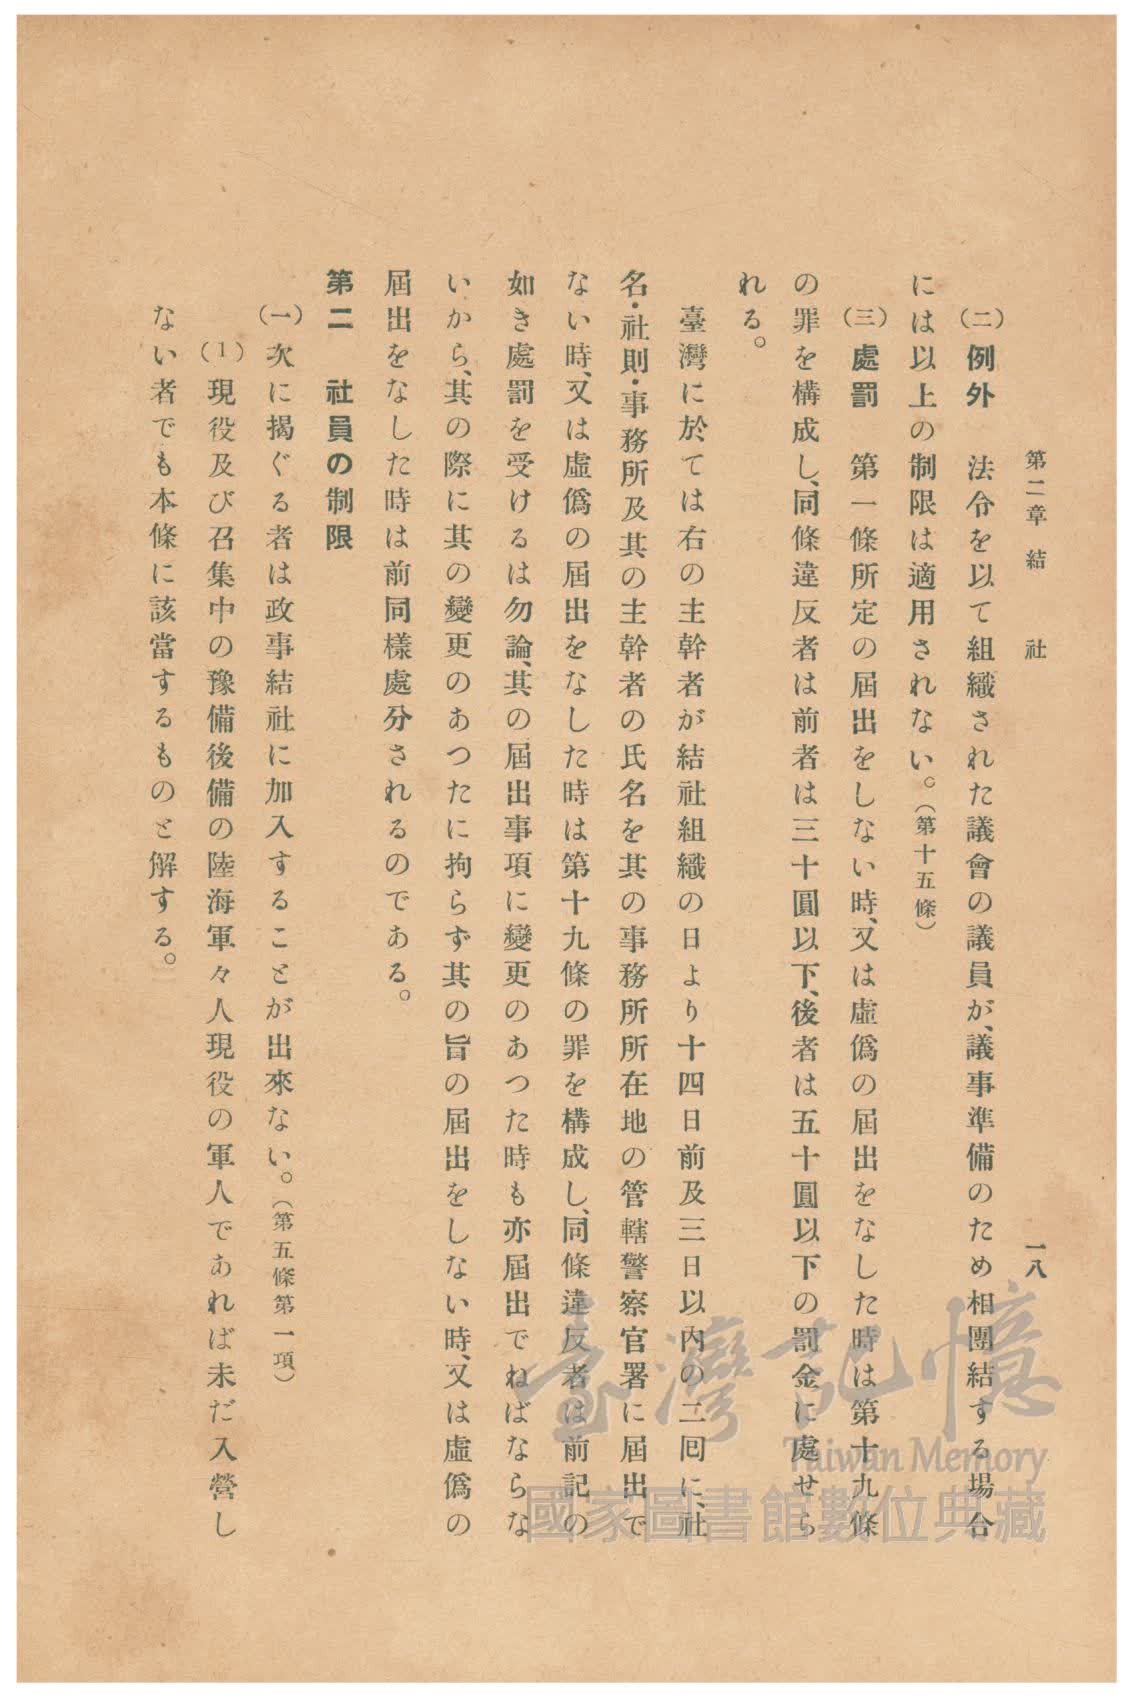 第二章 結 社
一八
(二)例外 法令を以て組織された議會の議員が、議事準備のため相團結する場合
には以上の制限は適用されない。(第十五條)
(三)處罰 第一條所定の屆出をしない時、又は虛僞の屆出をなした時は第十九條
の罪を構成し、同條違反者は前者は三十圓以下、後者は五十圓以下の罰金に處せら
れる。
臺灣に於ては右の主幹者が結社組織の日より十四日前及三日以內の二囘に、社
名・社則・事務所及其の主幹者の氏名を其の事務所所在地の管轄警察官署に屆出で
ない時、又は虛僞の屆出をなした時は第十九條の罪を構成し、同條違反者は前記の
如き處罰を受けるは勿論、其の屆出事項に變更のあつた時も亦屆出でねばならな
いから、其の際に其の變更のあつたに拘らず其の旨の屆出をしない時、又は虛僞の
屆出をなした時は前同樣處分されるのである。
第二 社員の制限
(一)次に揭ぐる者は政事結社に加入することが出來ない。(第五條第一項)
(1)現役及び召集中の豫備後備の陸海軍々人現役の軍人であれば未だ入營し
ない者でも本條に該當するものと解する。
臺灣記憶
Taiwan Memory
國家圖書館數位典藏